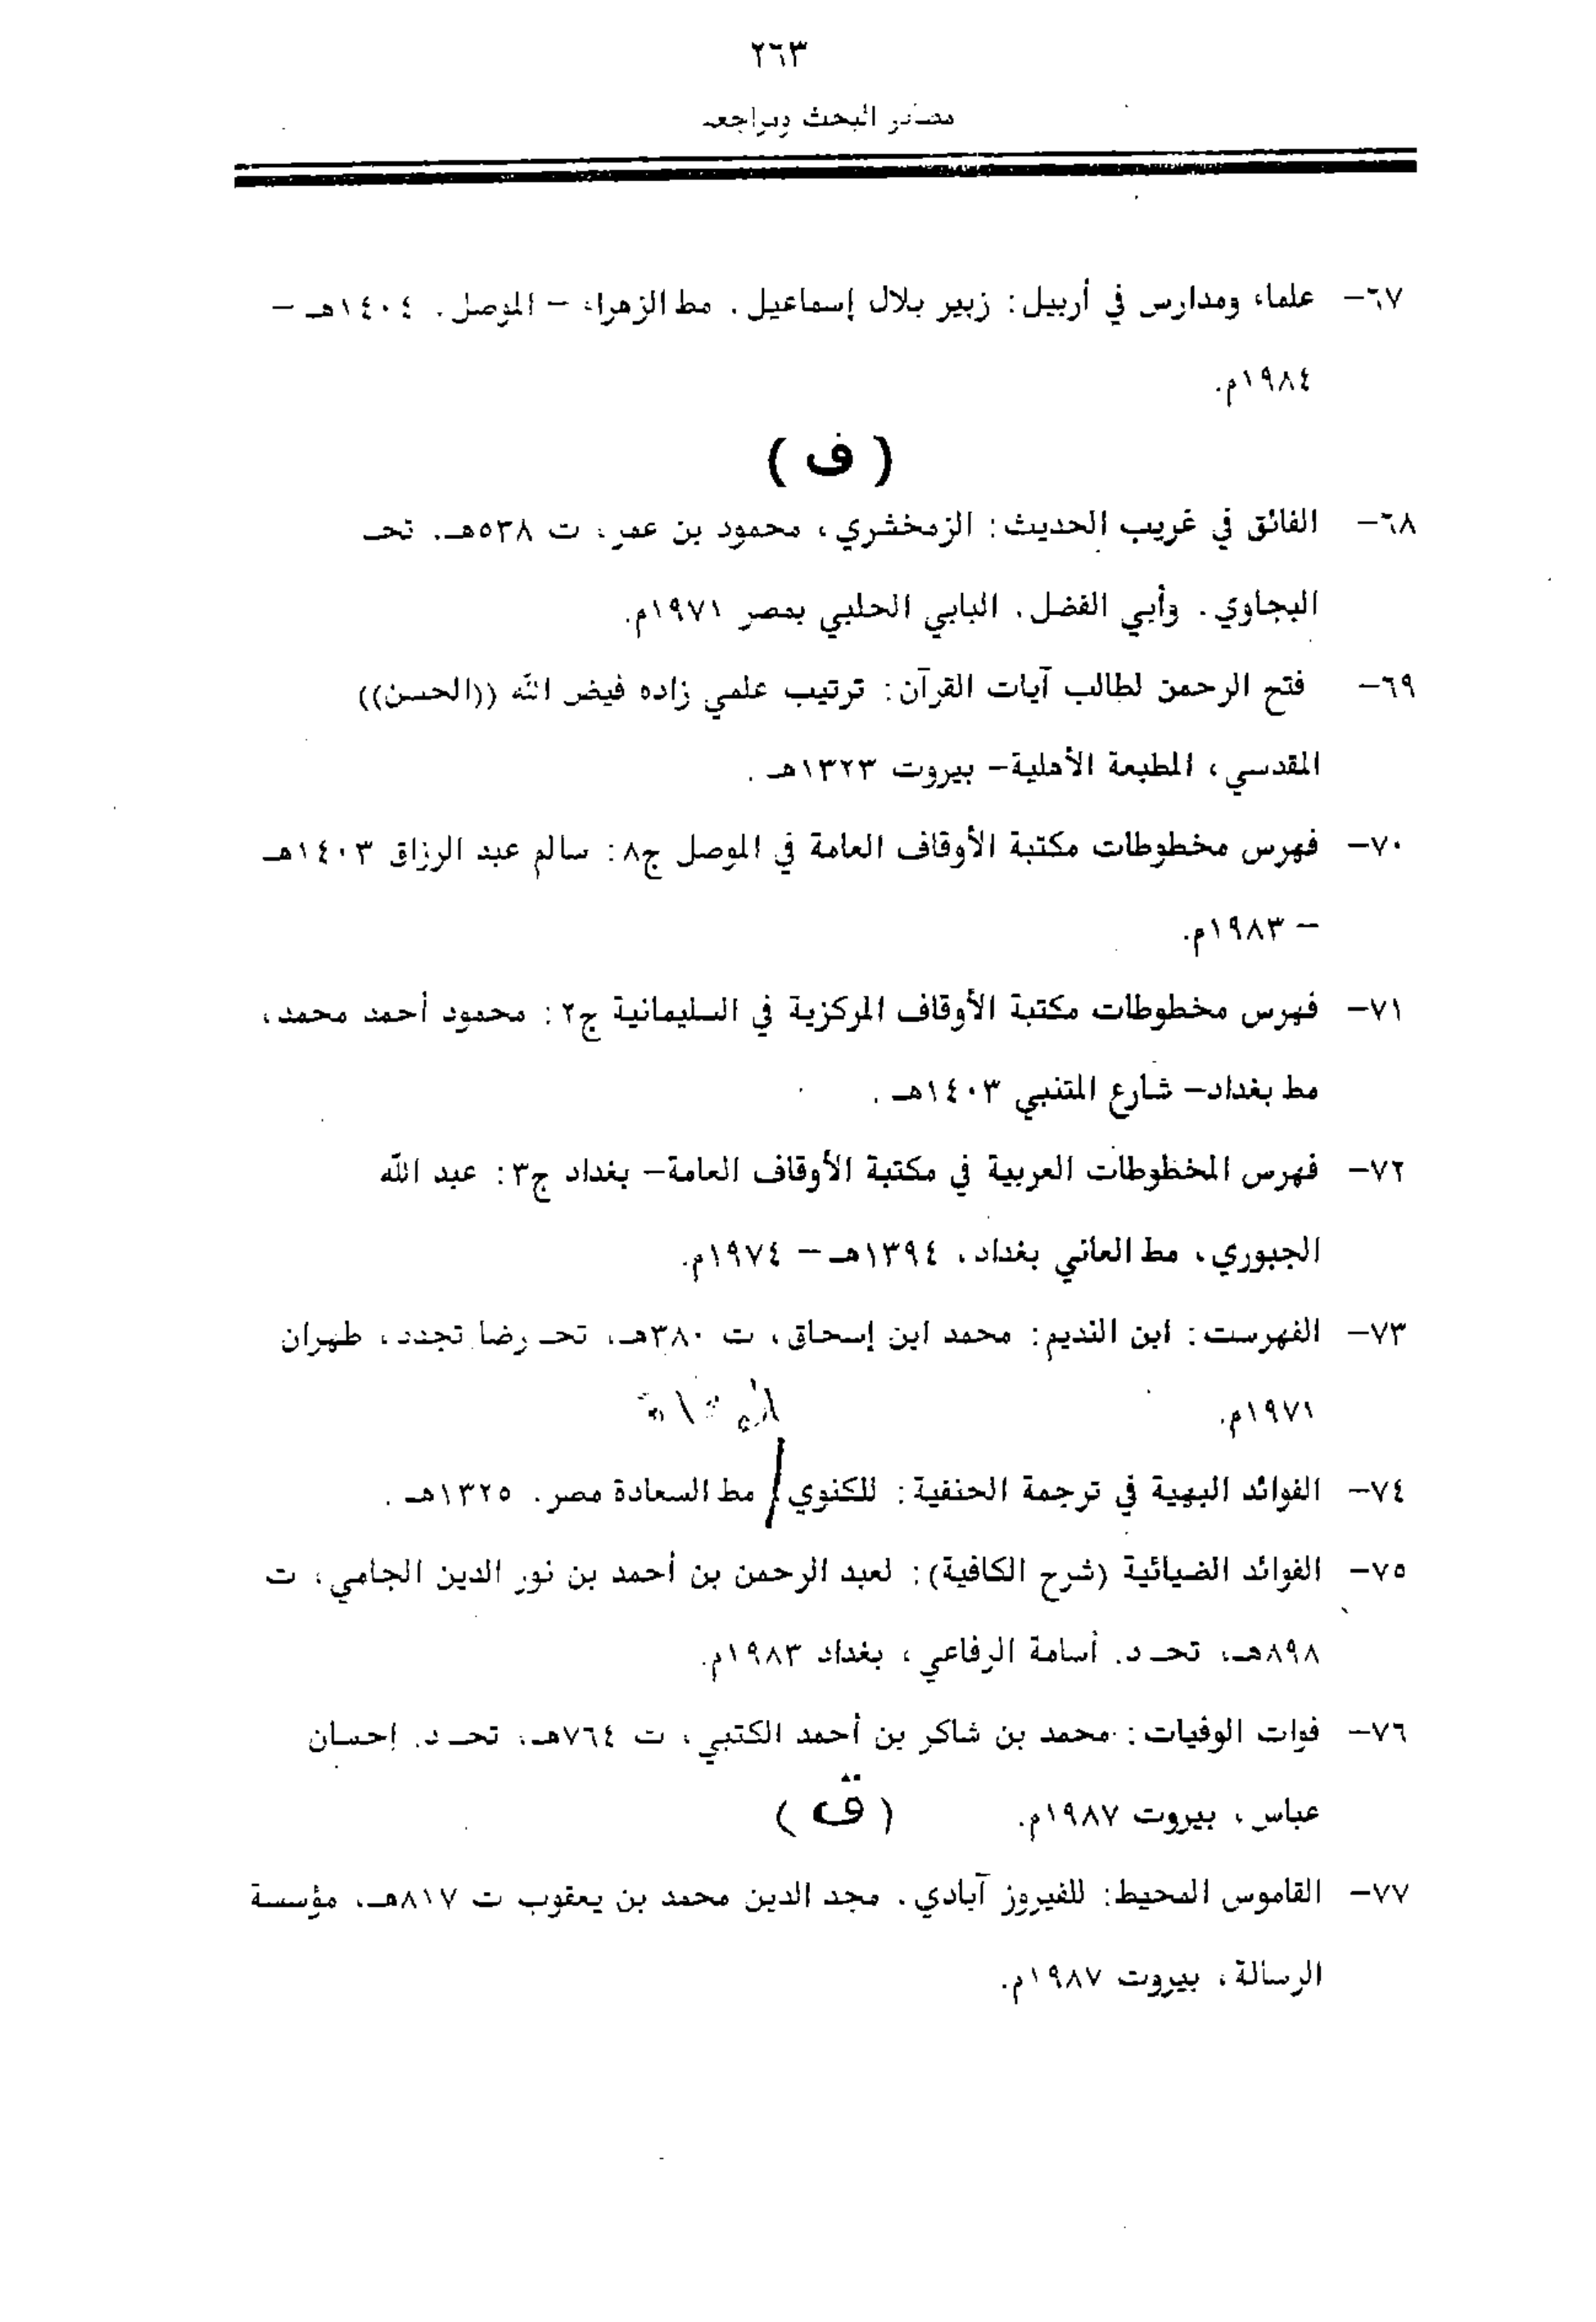 ٢٦٣
مصادر البحث ومراجعه
٦٧– علماء ومدارس في أربيل: زبير بلال إسماعيل. مط الزهراء – الموصل. ١٤٠٤هـ –
١٩٨٤م.
( ف )
٦٨– الفائق في غريب الحديث: الزمخشري، محمود بن عمر، ت ٥٣٨هـ. تحـ
البجاوي. وأبي الفضل. البابي الحلبي بمصر ١٩٧١م.
٦٩– فتح الرحمن لطالب آيات القرآن: ترتيب علمي زاده فيض الله ((الحسن))
المقدسي، المطبعة الأهلية– بيروت ١٣٢٣هـ .
٧٠– فهرس مخطوطات مكتبة الأوقاف العامة في الموصل ج٨: سالم عبد الرزاق ١٤٠٣هـ
– ١٩٨٣م.
٧١– فهرس مخطوطات مكتبة الأوقاف المركزية في السليمانية ج٢: محمود أحمد محمد،
مط بغداد– شارع المتنبي ١٤٠٣هـ .
٧٢– فهرس المخظوطات العربية في مكتبة الأوقاف العامة– بغداد ج٣: عبد الله
الجبوري، مط العاني بغداد، ١٣٩٤هـ – ١٩٧٤م.
٧٣– الفهرست: ابن النديم: محمد ابن إسحاق، ت ٣٨٠هـ، تحـ رضا تجدد، طهران
١٩٧١م.
٧٤– الفوائد البهية في ترجمة الحنفية: للكنوي/ مط السعادة مصر. ١٣٢٥هـ .
٧٥– الفوائد الضيائية (شرح الكافية): لعبد الرحمن بن أحمد بن نور الدين الجامي، ت
٨٩٨هـ، تحـ د. أسامة الرفاعي، بغداد ١٩٨٣م.
٧٦– فوات الوفيات: محمد بن شاكر بن أحمد الكتبي، ت ٧٦٤هـ، تحـ د. إحسان
عباس، بيروت ١٩٨٧م. ( ق )
٧٧– القاموس المحيط: للفيروز آبادي. مجد الدين محمد بن يعقوب ت ٨١٧هـ، مؤسسة
الرسالة، بيروت ١٩٨٧م.